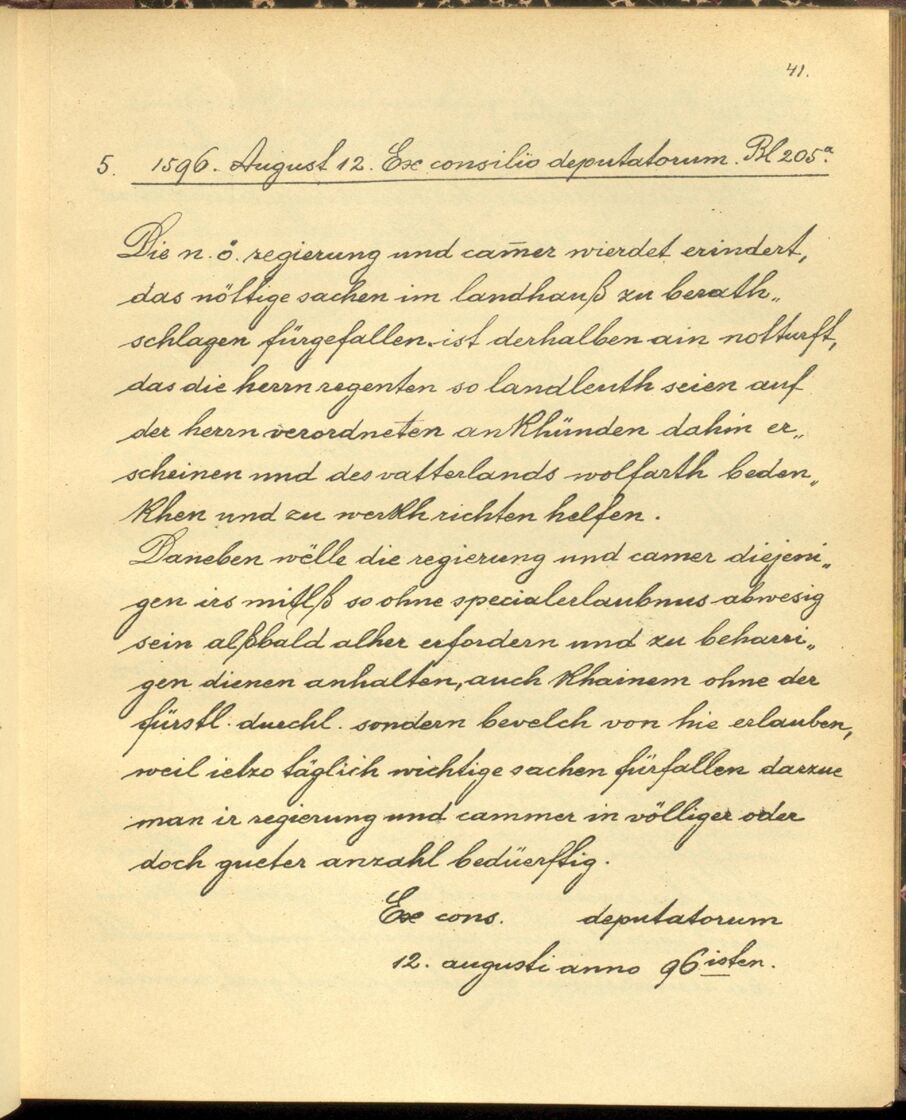 41.
5. 1596. August 12. Ex consilio deputatorum. Bl 205.a
Die n. ö. regierung und cam̄er wierdet erindert,
das nöttige sachen im landhauß zu berath„
schlagen fürgefallen. ist derhalben ain notturft,
das die herrn regenten so landleuth seien auf
der herrn verordneten ankhünden dahin er„
scheinen und des vatterlands wolfarth beden„
khen und zu werkh richten helfen.
Daneben wëlle die regierung und camer diejeni„
gen irs mitlß so ohne specialerlaubnus abwesig
sein alßbald alher erfordern und zu beharri„
gen dienen anhalten, auch khainem ohne der
fürstl. durchl. sondern bevelch von hie erlauben,
weil ietzo täglich wichtige sachen fürfallen darzue
man ir regierung und cammer in völliger oder
doch gueter anzahl bedüerftig.
Ex cons. deputatorum
12. augusti anno 96isten.